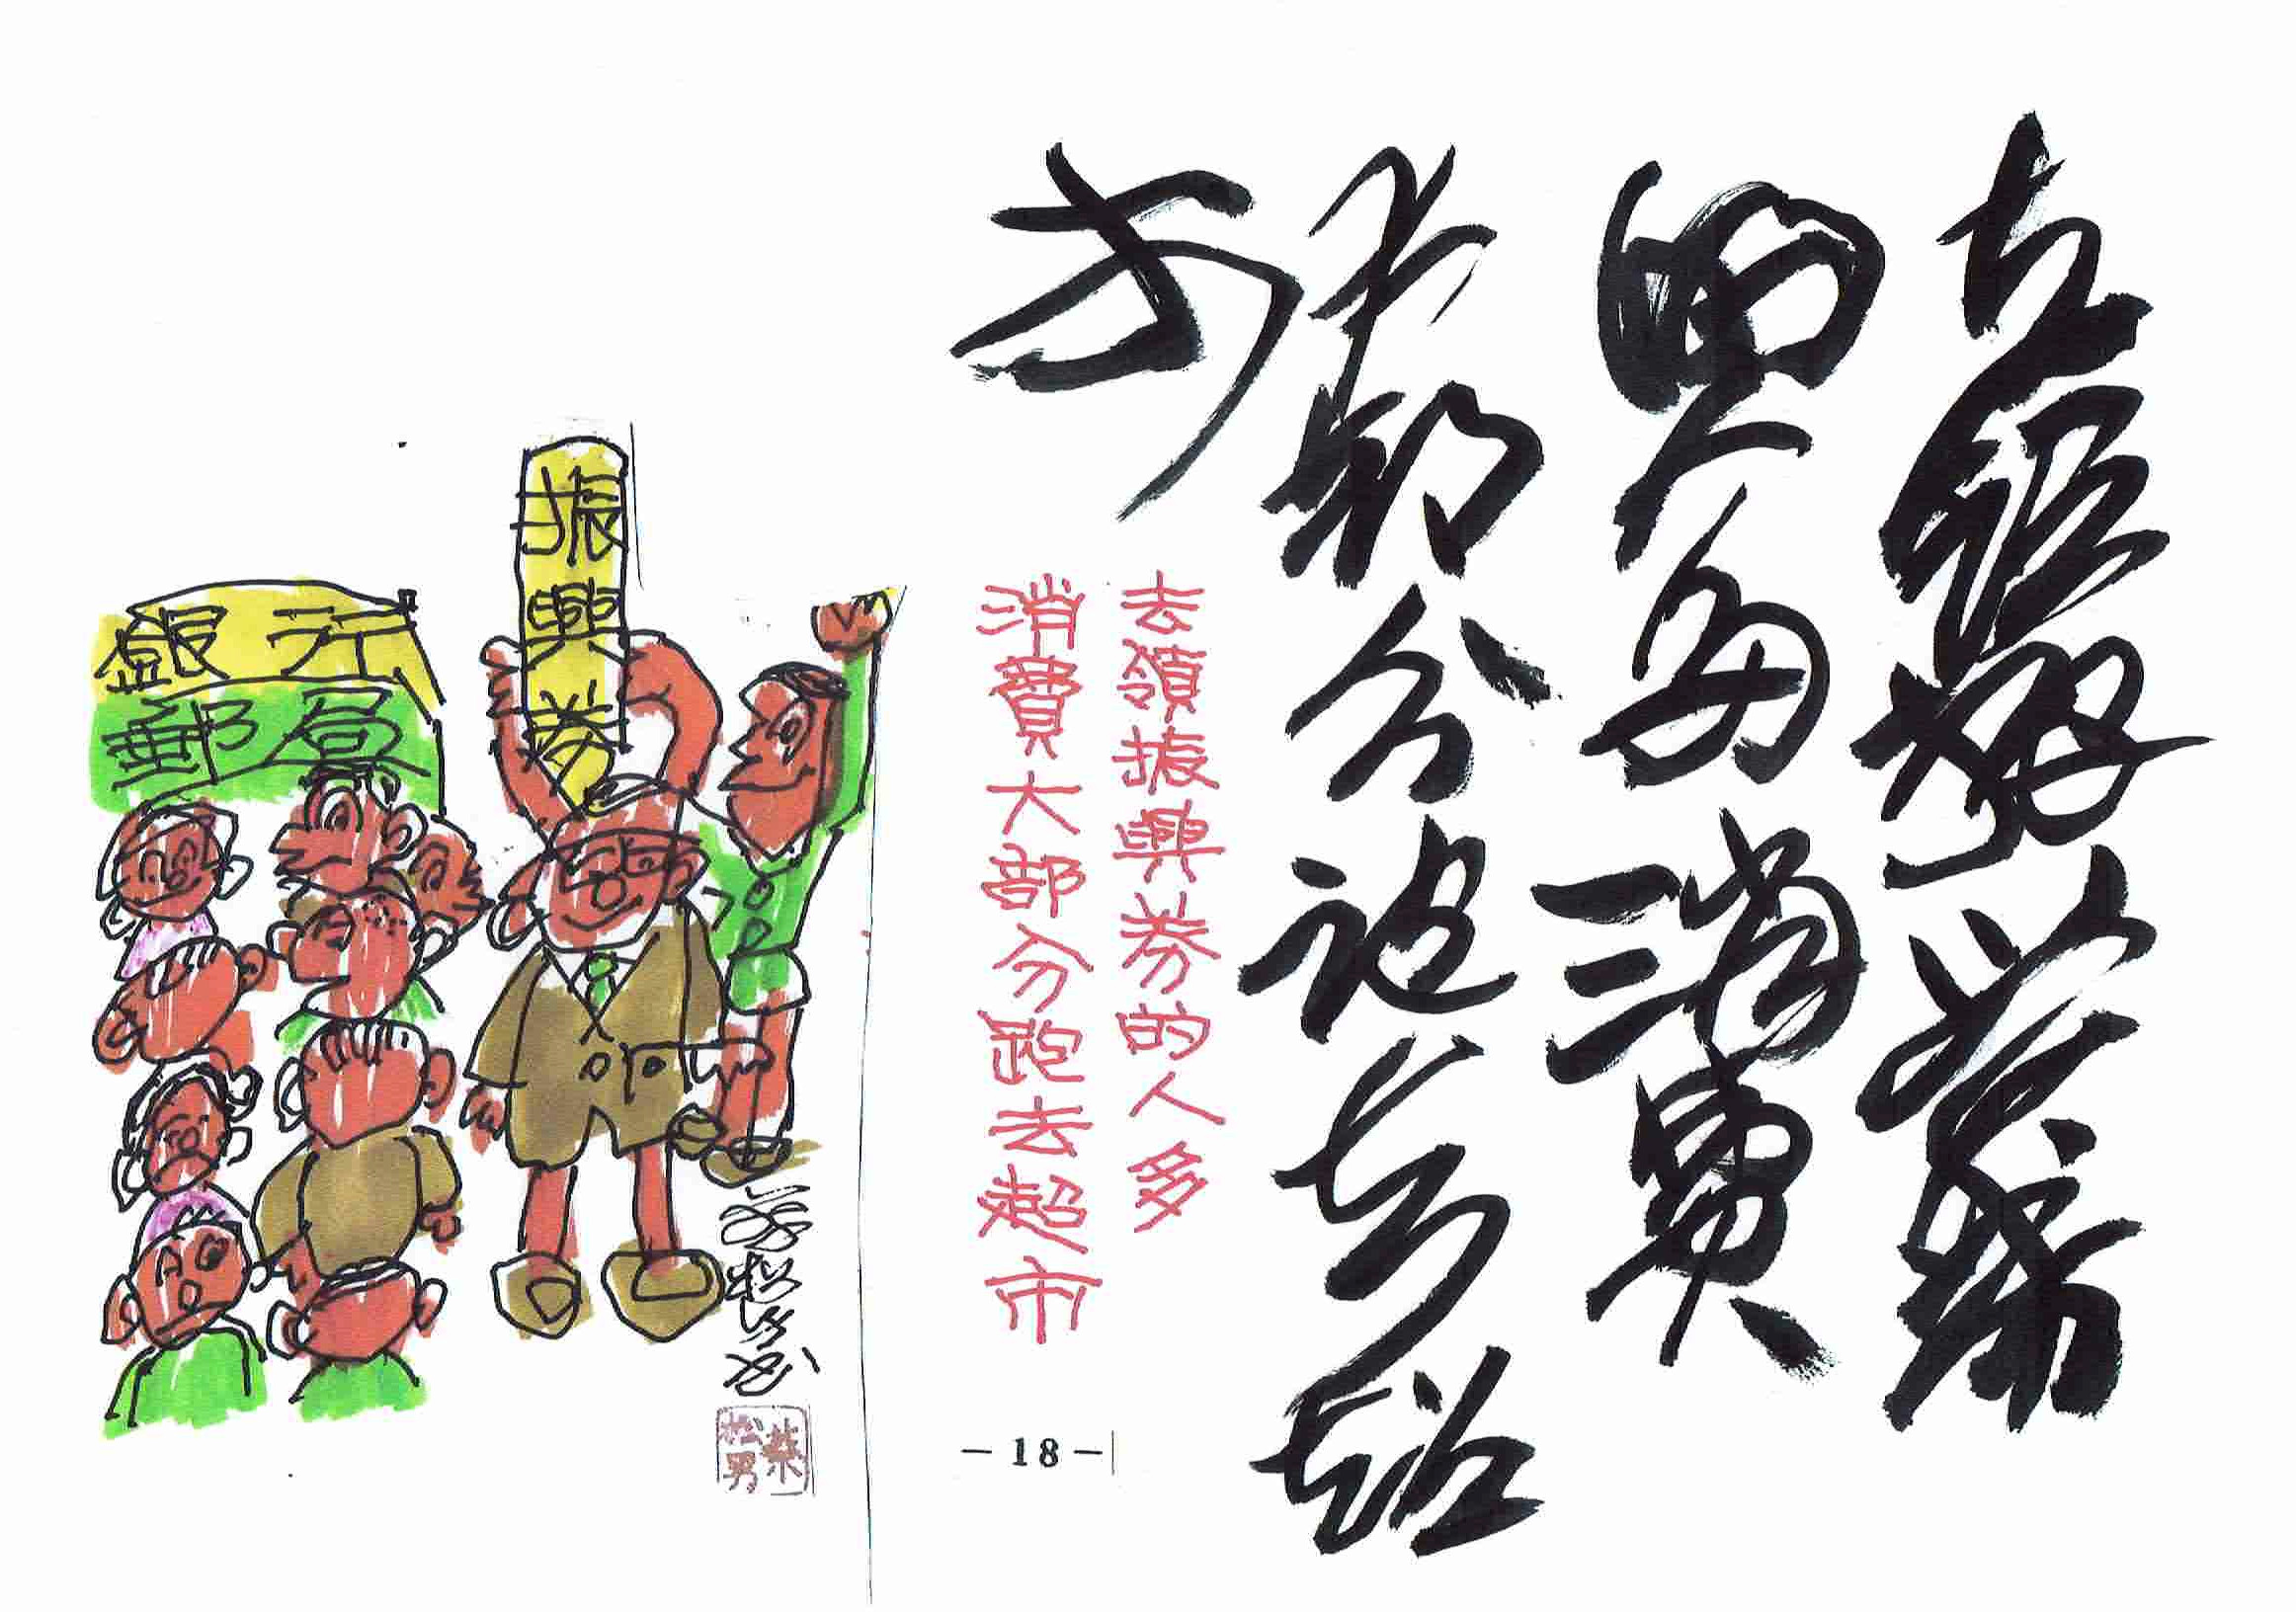 去領振興券
的人多消費
大部分跑去超
市
去領振興券的人多
消費大部分跑去超市
振興券
銀行
郵局
蔡松男
-18-